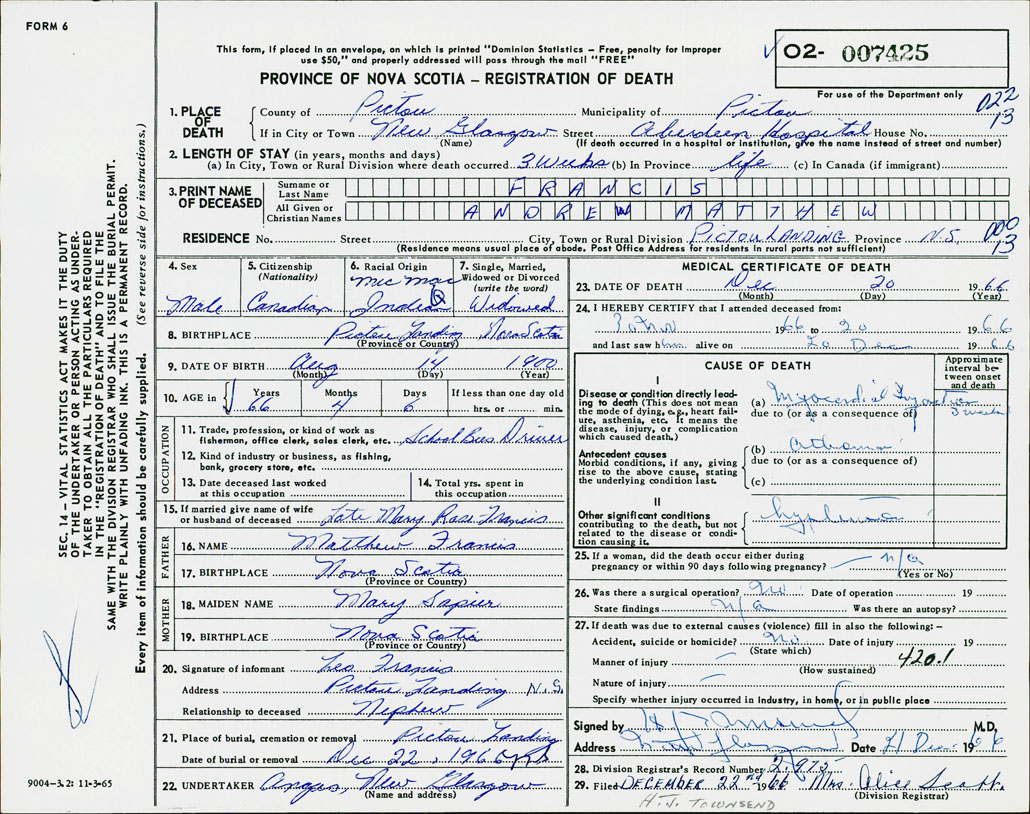 FORM 6
This form, if placed in an envelope, on which is printed "Dominion Statistics – Free, penalty for improper
use $50," and properly addressed will pass through the mail "FREE"
PROVINCE OF NOVA SCOTIA – REGISTRATION OF DEATH
O2- 007425
For use of the Department only
022
13
1. PLACE OF DEATH
County of Pictou Municipality of Pictou
If in City or Town New Glasgow Street Aberdeen Hospital House No.
(Name) (If death occurred in a hospital or institution, give the name instead of street and number)
2. LENGTH OF STAY (in years, months and days)
(a) In City, Town or Rural Division where death occurred 3 Weeks (b) In Province life (c) In Canada (if immigrant)
3. PRINT NAME OF DECEASED
Surname or Last Name FRANCIS
All Given or Christian Names ANDREW MATTHEW
000
13
RESIDENCE No. Street City, Town or Rural Division PICTOU LANDING Province N.S.
(Residence means usual place of abode. Post Office Address for residents in rural parts not sufficient)
4. Sex
Male
5. Citizenship
(Nationality)
Canadian
6. Racial Origin
Mic Mac
Indian
7. Single, Married,
Widowed or Divorced
(write the word)
Widowed
8. BIRTHPLACE Pictou Landing Nova Scotia
(Province or Country)
9. DATE OF BIRTH Aug 14 1900
(Month) (Day) (Year)
10. AGE in
Years Months Days If less than one day old
66 4 6 hrs. or min.
OCCUPATION
11. Trade, profession, or kind of work as
fisherman, office clerk, sales clerk, etc. School Bus Driver
12. Kind of industry or business, as fishing,
bank, grocery store, etc.
13. Date deceased last worked
at this occupation
14. Total yrs. spent in
this occupation
15. If married give name of wife
or husband of deceased Late Mary Rose Francis
FATHER
16. NAME Matthew Francis
17. BIRTHPLACE Nova Scotia
(Province or Country)
MOTHER
18. MAIDEN NAME Mary Sapier
19. BIRTHPLACE Nova Scotia
(Province or Country)
20. Signature of informant Leo Francis
Address Pictou Landing N.S.
Relationship to deceased Nephew
21. Place of burial, cremation or removal Pictou Landing
Date of burial or removal Dec 22, 1966
22. UNDERTAKER Angus, New Glasgow
(Name and address)
MEDICAL CERTIFICATE OF DEATH
23. DATE OF DEATH Dec 20 1966
(Month) (Day) (Year)
24. I HEREBY CERTIFY that I attended deceased from:
1966 to 20 1966
and last saw him alive on 20 Dec 1966
CAUSE OF DEATH
Approximate
interval be-
tween onset
and death
I
Disease or condition directly lead-
ing to death (This does not mean
the mode of dying, e.g., heart fail-
ure, asthenia, etc. It means the
disease, injury, or complication
which caused death.)
(a) Myocardial Infarction
due to (or as a consequence of) 3 weeks
Antecedent causes
Morbid conditions, if any, giving
rise to the above cause, stating
the underlying condition last.
(b)
due to (or as a consequence of)
(c)
II
Other significant conditions
contributing to the death, but not
related to the disease or condi-
tion causing it.
25. If a woman, did the death occur either during
pregnancy or within 90 days following pregnancy? n/a
(Yes or No)
26. Was there a surgical operation? No Date of operation 19
State findings n/a Was there an autopsy?
27. If death was due to external causes (violence) fill in also the following: –
Accident, suicide or homicide? No Date of injury 19
(State which)
Manner of injury 420.1
(How sustained)
Nature of injury
Specify whether injury occurred in Industry, in home, or in public place
Signed by M.D.
Address Date 21 Dec 1966
28. Division Registrar's Record Number 2,973
29. Filed DECEMBER 22nd 1966 Mrs. Alice Scott.
(Division Registrar)
H.J. TOWNSEND
SEC. 14 – VITAL STATISTICS ACT MAKES IT THE DUTY
OF THE UNDERTAKER OR PERSON ACTING AS UNDER-
TAKER TO OBTAIN ALL THE PARTICULARS REQUIRED
IN THE "REGISTRATION OF DEATH" AND TO FILE THE
SAME WITH THE DIVISION REGISTRAR WHO SHALL ISSUE THE BURIAL PERMIT.
WRITE PLAINLY WITH UNFADING INK. THIS IS A PERMANENT RECORD.
Every item of information should be carefully supplied. (See reverse side for instructions.)
9004–3.2: 11-3-65